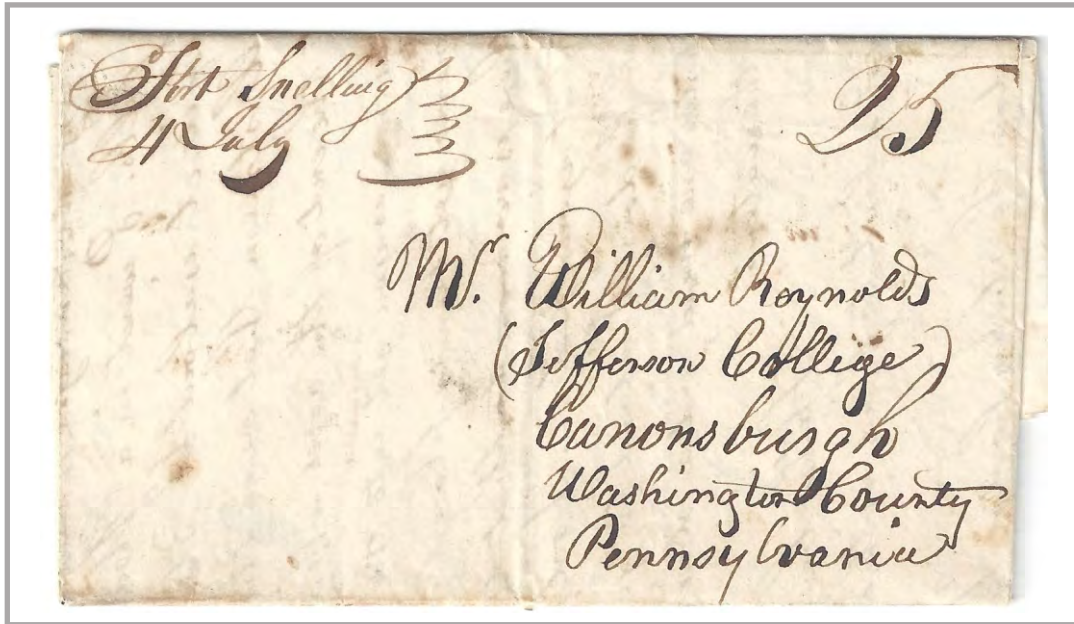 Fort Snelling
4 July
25
Mr. William Reynolds
(Jefferson College)
Canonsburgh
Washington County
Pennsylvania